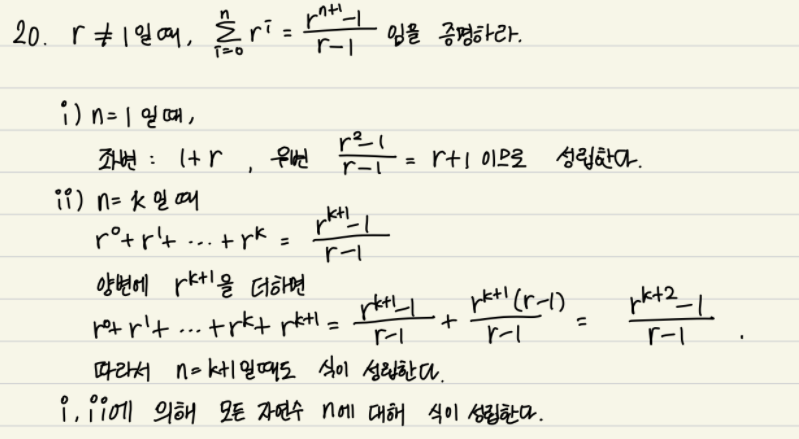 20. r ≠ 1 일 때, \sum_{i=0}^{n} r^i = \frac{r^{n+1}-1}{r-1} 임을 증명하라.
i) n=1 일 때,
좌변 : 1+r , 우변 \frac{r^2-1}{r-1} = r+1 이므로 성립한다.
ii) n=k 일 때
r^0+r^1+ ... +r^k = \frac{r^{k+1}-1}{r-1}
양변에 r^{k+1}을 더하면
r^0+r^1+ ... +r^k+r^{k+1} = \frac{r^{k+1}-1}{r-1} + \frac{r^{k+1}(r-1)}{r-1} = \frac{r^{k+2}-1}{r-1} .
따라서 n=k+1일때도 식이 성립한다.
i, ii에 의해 모든 자연수 n에 대해 식이 성립한다.